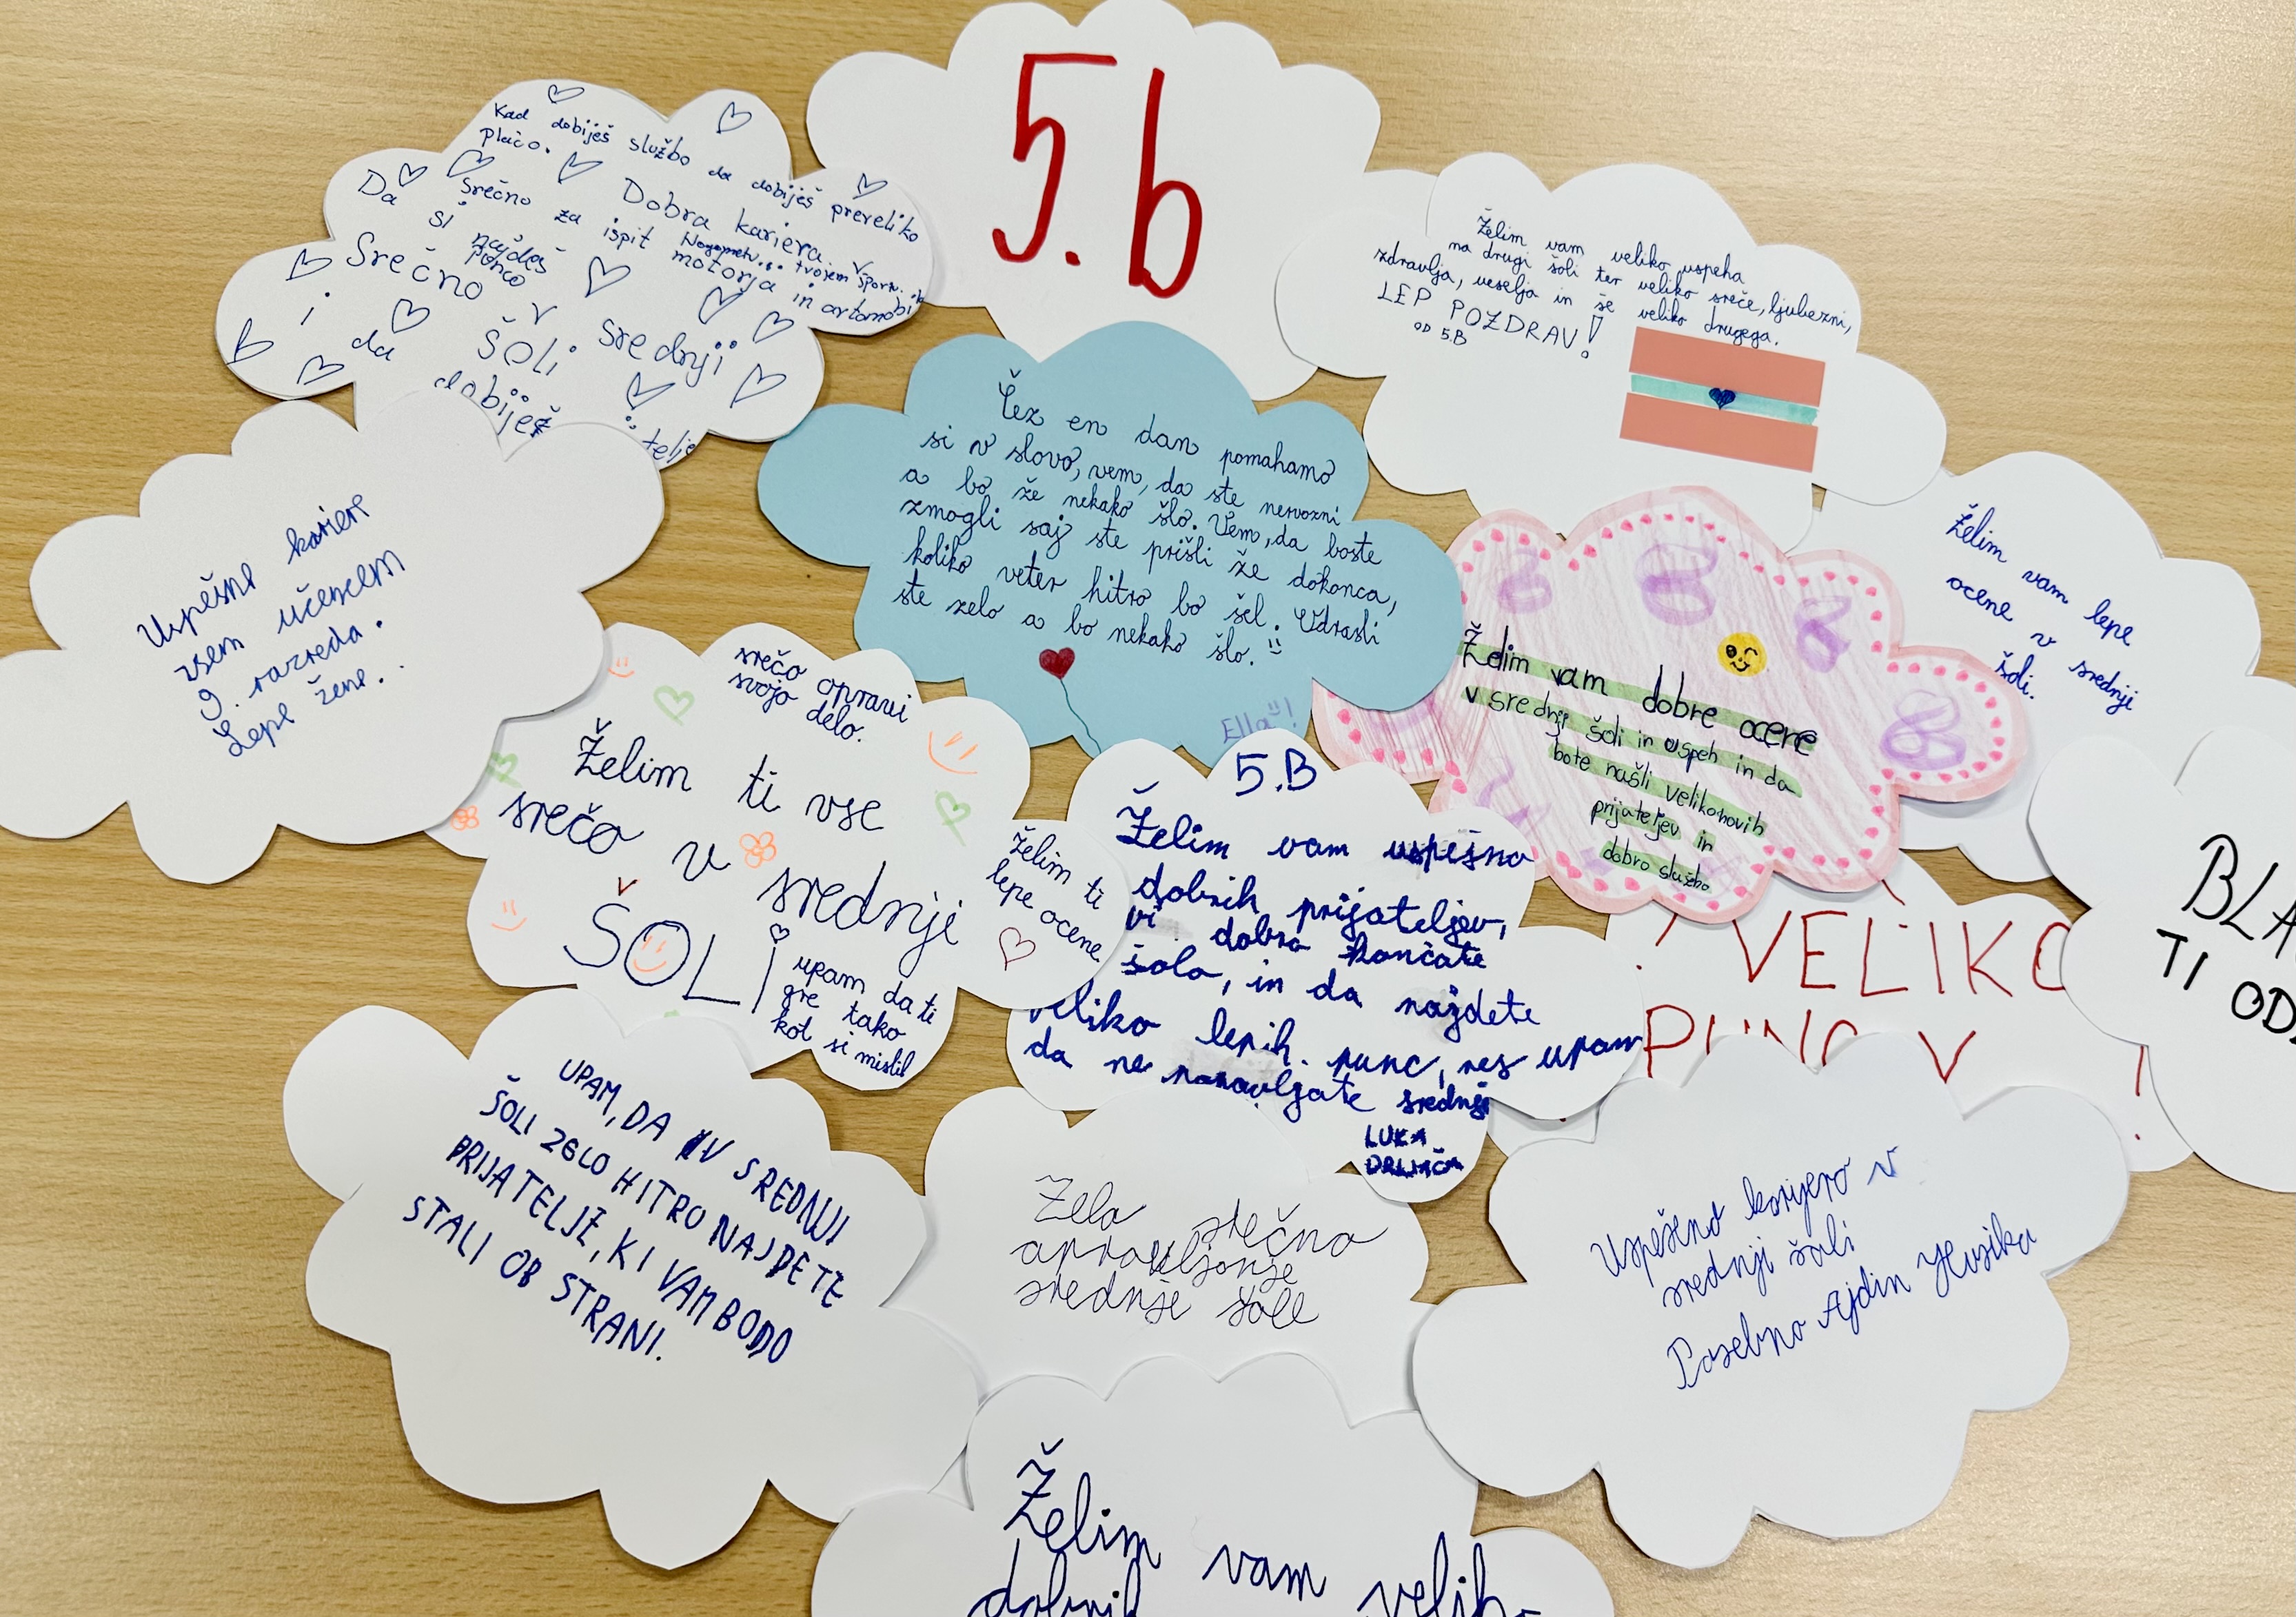 5.b
Kad dobiješ službo da dobiješ preveliko
plačo.
Dobra kariera
Srečno za ispit
motorja in avtomobi
Da si najdeš
Srečno v srednji
šoli
i da dobiješ
Želim vam veliko uspeha
na drugi šoli ter veliko sreče, ljubezni,
zdravlja, veselja in še veliko drugega.
LEP POZDRAV!
OD 5.B
Čez en dan pomahamo
si v slovo, vem, da ste nervozni
a bo že nekako šlo. Vem, da boste
zmogli saj ste prišli že dokonca,
koliko veter hitro bo šel. Odrasli
ste zelo a bo nekako šlo.
Ella!
Želim vam lepe
ocene v srednji
šoli.
Želim vam dobre ocene
v srednji šoli in uspeh in da
bote našli veliko novih
prijateljev in
dobro službo
Uspešne kariere
vsem učencem
9. razreda.
Lepe žene.
srečo opravi
svojo delo.
Želim ti vse
srečo v srednji
ŠOLi
upam da ti
gre tako
kot si mislil
Želim ti
lepe ocene
5.B
Želim vam uspešno
dobrih prijateljev,
vi dobro končate
šolo, in da najdete
veliko lepih punc, res upam
da ne ponavljate srednje
LUKA
! VELIKO
PUNC V
BLA
TI OD
UPAM, DA V SREDNJI
ŠOLI ZELO HITRO NAJDETE
PRIJATELJE, KI VAM BODO
STALI OB STRANI.
Zela srečno
apravljanje
srednje šole
Uspešeno karijero v
srednji šoli
Posebno Ajdin Husika
Želim vam veliko
dobrih